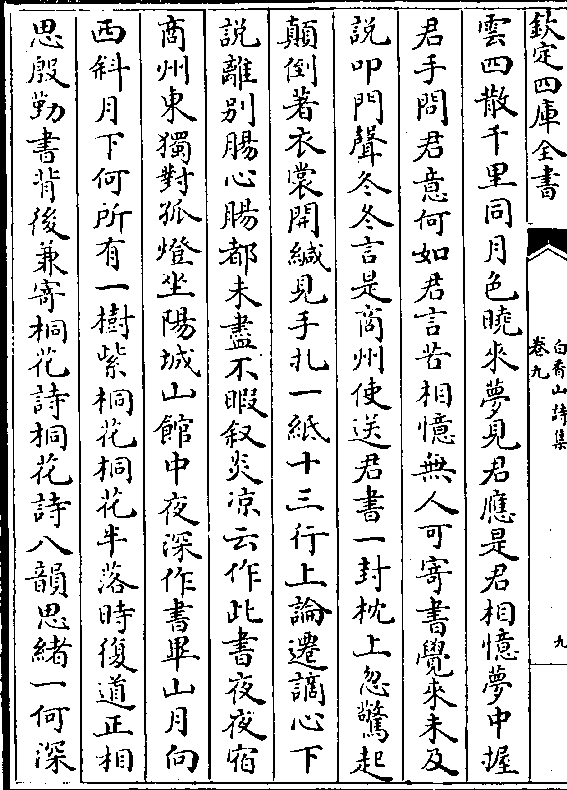 欽定四庫全書
白香山詩集
卷九
九
雲四散千里同月色曉來夢見君應是君相憶夢中握
君手問君意何如君言苦相憶無人可寄書覺來未及
說叩門聲冬冬言是商州使送君書一封枕上忽驚起
顛倒著衣裳開緘見手札一紙十三行上論遷謫心下
說離别腸心腸都未盡不暇叙炎凉云作此書夜夜宿
商州東獨對孤燈坐陽城山館中夜深作書畢山月向
西斜月下何所有一樹紫桐花桐花半落時復道正相
思殷勤書背後兼寄桐花詩桐花詩八韻思緒一何深